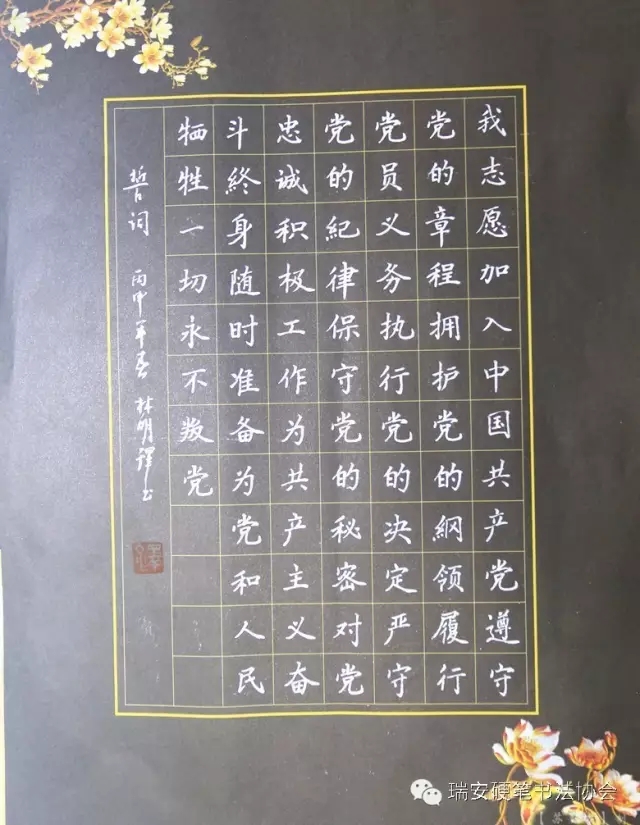 我志愿加入中国共产党遵守
党的章程拥护党的綱领履行
党员义务执行党的决定严守
党的紀律保守党的秘密对党
忠诚积极工作为共产主义奋
斗終身随时准备为党和人民
牺牲一切永不叛党
誓词 丙申年春 林明譯书
瑞安硬笔书法协会